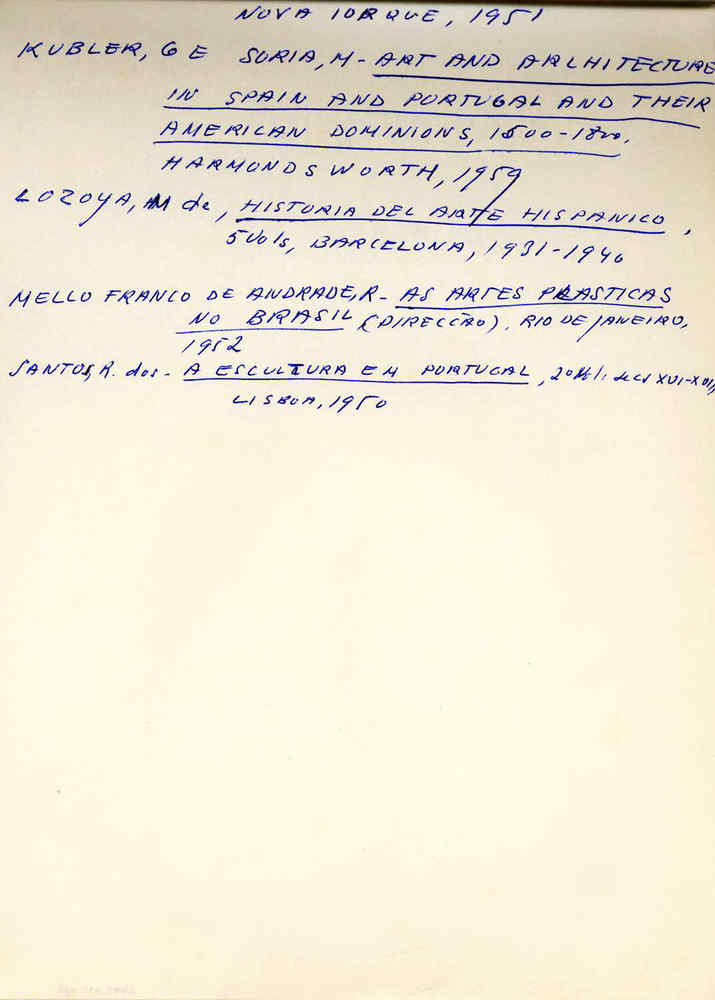 NOVA IORQUE, 1951
KUBLER, G E SORIA, M - ART AND ARCHITECTURE
IN SPAIN AND PORTUGAL AND THEIR
AMERICAN DOMINIONS, 1500-1800.
HARMONDSWORTH, 1959
LOZOYA, M de, HISTORIA DEL ARTE HISPANICO,
5 Vols, BARCELONA, 1931-1940
MELLO FRANCO DE ANDRADE, R - AS ARTES PLASTICAS
NO BRASIL (DIRECÇÃO). RIO DE JANEIRO,
1952
SANTOS, R. dos - A ESCULTURA EM PORTUGAL, XVI-XVIII,
LISBOA, 1950